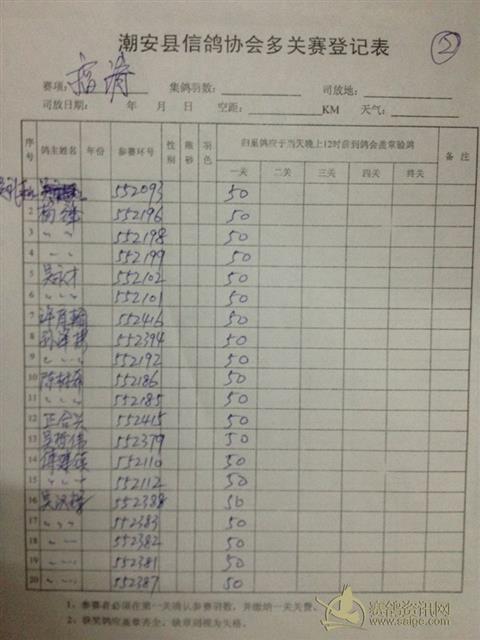 潮安县信鸽协会多关赛登记表
②
赛项： 集鸽羽数： 司放地：
司放日期： 年 月 日 空距： KM 天气：
序号 鸽主姓名 年份 参赛环号 性别 眼砂 羽色 归巢鸽应于当天晚上12时前到鸽会盖章验鸽 备注
一关 二关 三关 四关 终关
552093 50
2 552196 50
3 〃 〃 552198 50
4 〃 〃 552199 50
5 吴永才 552102 50
6 〃 〃 〃 552101 50
7 552416 50
8 552394 50
9 〃 〃 〃 552192 50
10 552186 50
11 〃 〃 〃 552185 50
12 正合兴 552415 50
13 吴哲伟 552379 50
14 552110 50
15 〃 〃 〃 552112 50
16 552388 50
17 〃 〃 〃 552383 50
18 〃 〃 〃 552382 50
19 〃 〃 〃 552381 50
20 〃 〃 〃 552387 50
1、参赛者必须在第一关确认参赛羽数，并缴纳一关关费。
2、获奖鸽应盖章齐全，缺章则视为失格。
赛鸽资讯网
www.saige.com